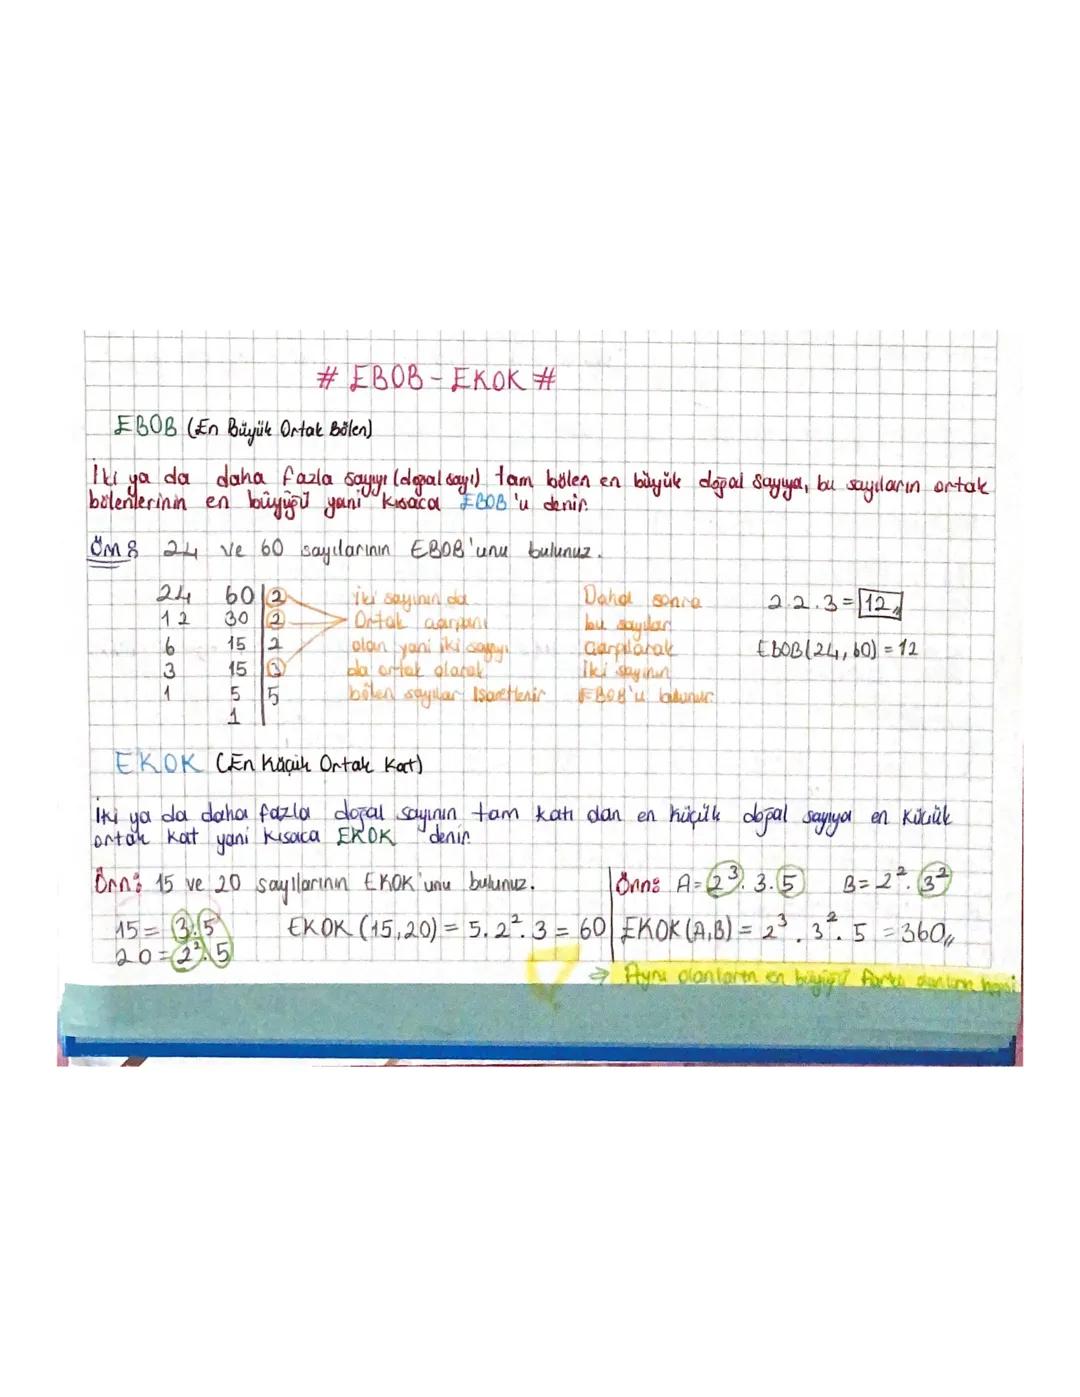 # EBOB - EKOK #
EBOB (En Büyük Ortak Bölen)
İki ya da daha fazla sayıyı (doğal sayı) tam bölen en büyük doğal sayıya, bu sayıların ortak
bölenlerinin en büyüğü yani kısaca EBOB'u denir.
Örn: 24 ve 60 sayılarının EBOB'unu bulunuz.
24 60 | 2
12 30 | 2
6 15 | 2
3 15 | 3
1 5 | 5
1
İki sayının da
Ortak çarpanı
olan yani iki sayıyı
da ortak olarak
bölen sayılar İşaretlenir
Daha sonra
bu sayılar
Çarpılarak
İki sayının
EBOB'u bulunur.
2.2.3 = 12
EBOB(24,60) = 12
EKOK (En Küçük Ortak Kat)
İki ya da daha fazla doğal sayının tam katı olan en küçük doğal sayıya en küçük
ortak kat yani kısaca EKOK denir.
Örn: 15 ve 20 sayılarının EKOK'unu bulunuz.
15 = 3.5
20 = 2².5
EKOK (15,20) = 5. 2². 3 = 60
Örn: A = 2³. 3. 5 B = 2². 3²
EKOK (A,B) = 2³. 3². 5 = 360
→ Aynı olanların en büyüğü farklı olanların hepsi